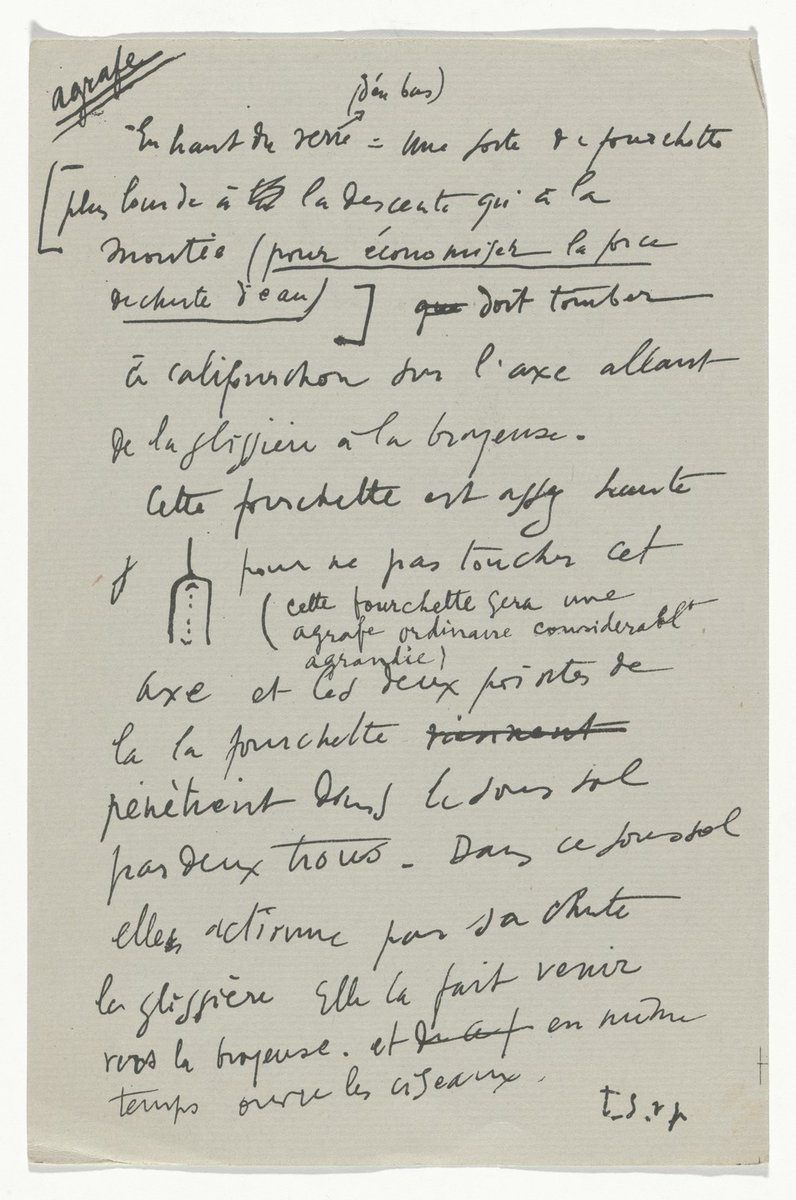 agrafe
(d'en bas)
En haut du verre = une sorte de fourchette
[plus lourde à la descente qu'à la
montée (pour économiser la force
de chute d'eau)] que doit tomber
à califourchon sur l'axe allant
de la glissière à la broyeuse.
Cette fourchette est assez haute
pour ne pas toucher cet
(cette fourchette sera une
agrafe ordinaire considerablt
agrandie)
axe et les deux pointes de
la la fourchette viennent
pénètrent dans le sous sol
par deux trous _ Dans ce sous sol
elle actionne par sa chute
la glissière Elle la fait venir
vers la broyeuse. et en même
temps ouvre les ciseaux.
T.S.V.P